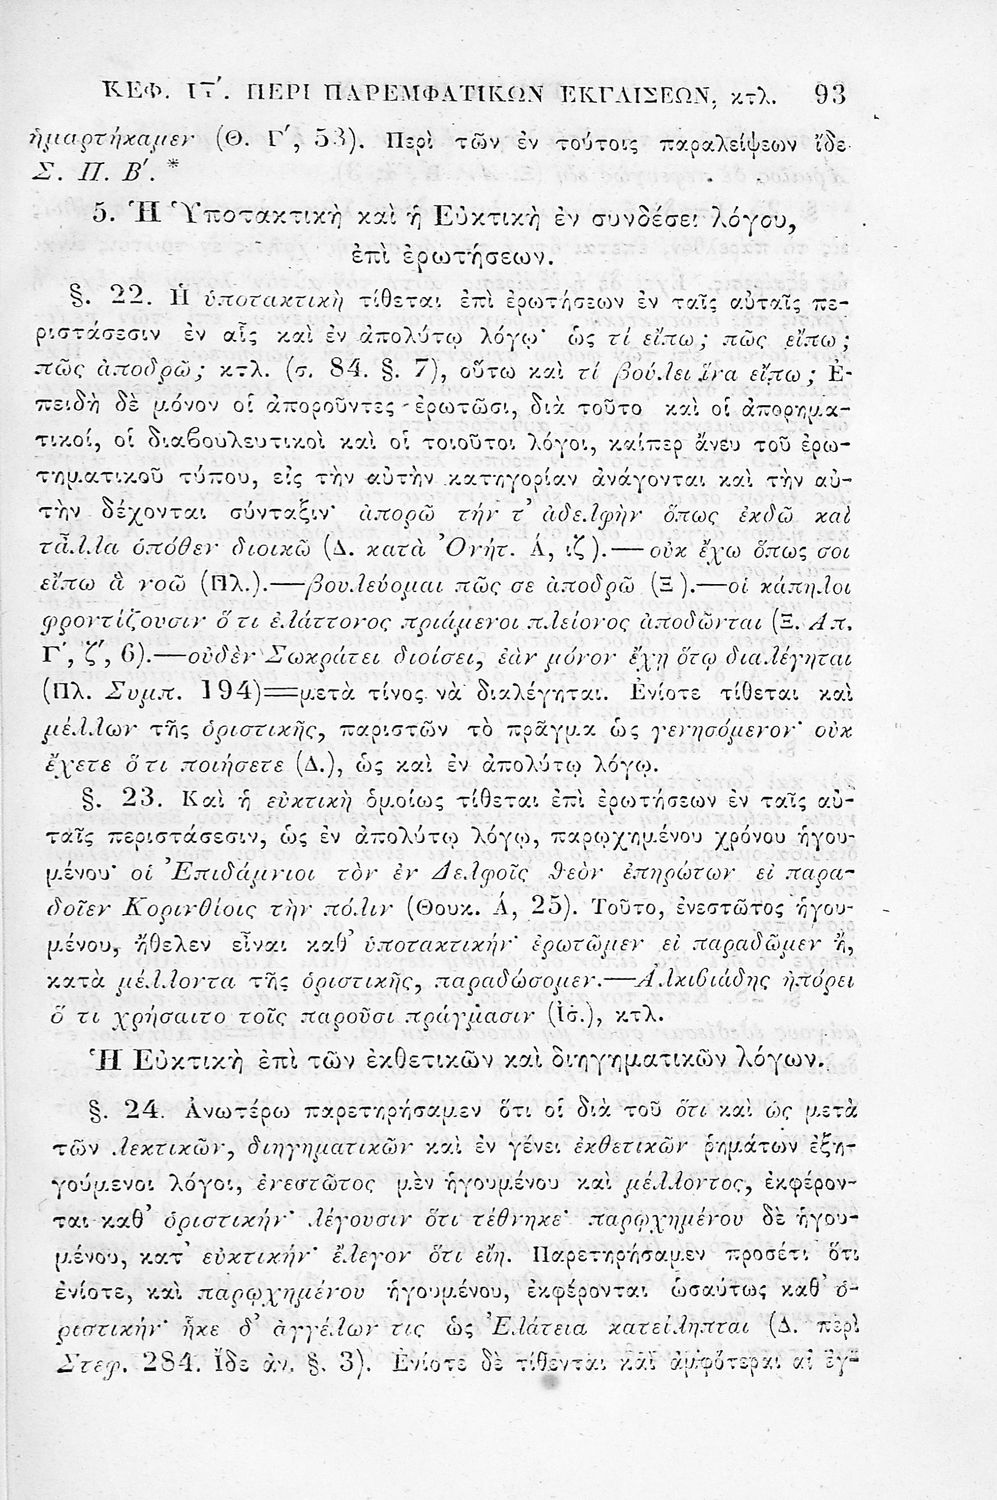 ΚΕΦ. ΙϚ′. ΠΕΡΙ ΠΑΡΕΜΦΑΤΙΚΩΝ ΕΚΓΛΙΣΕΩΝ, κτλ. 93
ἡμαρτήκαμεν (Θ. Γ′, 53). Περὶ τῶν ἐν τούτοις παραλείψεων ἴδε
Σ. Π. Β′. *
5. Ἡ Ὑποτακτικὴ καὶ ἡ Εὐκτικὴ ἐν συνδέσει λόγου,
ἐπὶ ἐρωτήσεων.
§. 22. Ἡ ὑποτακτικὴ τίθεται ἐπὶ ἐρωτήσεων ἐν ταῖς αὐταῖς πε-
ριστάσεσιν ἐν αἷς καὶ ἐν ἀπολύτῳ λόγῳ· ὡς τί εἴπω; πῶς εἴπω;
πῶς ἀποδρῶ; κτλ. (σ. 84. §. 7), οὕτω καὶ τί βούλει ἵνα εἴπω; Ἐ-
πειδὴ δὲ μόνον οἱ ἀποροῦντες ἐρωτῶσι, διὰ τοῦτο καὶ οἱ ἀπορημα-
τικοί, οἱ διαβουλευτικοὶ καὶ οἱ τοιοῦτοι λόγοι, καίπερ ἄνευ τοῦ ἐρω-
τηματικοῦ τύπου, εἰς τὴν αὐτὴν κατηγορίαν ἀνάγονται καὶ τὴν αὐ-
τὴν δέχονται σύνταξιν· ἀπορῶ τήν τ’ ἀδελφὴν ὅπως ἐκδῶ καὶ
τἆλλα ὁπόθεν διοικῶ (Δ. κατὰ Ὀνήτ. Ά, ιζ′).—οὐκ ἔχω ὅπως σοι
εἴπω ἃ νοῶ (Πλ.).—βουλεύομαι πῶς σε ἀποδρῶ (Ξ).—οἱ κάπηλοι
φροντίζουσιν ὅ τι ἐλάττονος πριάμενοι πλείονος ἀποδῶνται (Ξ. Ἀπ.
Γ′, ζ′, 6).—οὐδὲν Σωκράτει διοίσει, ἐὰν μόνον ἔχῃ ὅτῳ διαλέγηται
(Πλ. Συμπ. 194)=μετὰ τίνος νὰ διαλέγηται. Ἐνίοτε τίθεται καὶ
μέλλων τῆς ὁριστικῆς, παριστῶν τὸ πρᾶγμα ὡς γενησόμενον· οὐκ
ἔχετε ὅ τι ποιήσετε (Δ.), ὡς καὶ ἐν ἀπολύτῳ λόγῳ.
§. 23. Καὶ ἡ εὐκτικὴ ὁμοίως τίθεται ἐπὶ ἐρωτήσεων ἐν ταῖς αὐ-
ταῖς περιστάσεσιν, ὡς ἐν ἀπολύτῳ λόγῳ, παρῳχημένου χρόνου ἡγου-
μένου· οἱ Ἐπιδάμνιοι τὸν ἐν Δελφοῖς θεὸν ἐπηρώτων εἰ παρα-
δοῖεν Κορινθίοις τὴν πόλιν (Θουκ. Ά, 25). Τοῦτο, ἐνεστῶτος ἡγου-
μένου, ἤθελεν εἶναι καθ’ ὑποτακτικήν· ἐρωτῶμεν εἰ παραδῶμεν ἤ,
κατὰ μέλλοντα τῆς ὁριστικῆς, παραδώσομεν.—Ἀλκιβιάδης ἠπόρει
ὅ τι χρήσαιτο τοῖς παροῦσι πράγμασιν (Ἰσ.), κτλ.
Ἡ Εὐκτικὴ ἐπὶ τῶν ἐκθετικῶν καὶ διηγηματικῶν λόγων.
§. 24. Ἀνωτέρω παρετηρήσαμεν ὅτι οἱ διὰ τοῦ ὅτι καὶ ὡς μετὰ
τῶν λεκτικῶν, διηγηματικῶν καὶ ἐν γένει ἐκθετικῶν ῥημάτων ἐξη-
γούμενοι λόγοι, ἐνεστῶτος μὲν ἡγουμένου καὶ μέλλοντος, ἐκφέρον-
ται καθ’ ὁριστικήν· λέγουσιν ὅτι τέθνηκε· παρῳχημένου δὲ ἡγου-
μένου, κατ’ εὐκτικήν· ἔλεγον ὅτι εἴη. Παρετηρήσαμεν προσέτι ὅτι
ἐνίοτε, καὶ παρῳχημένου ἡγουμένου, ἐκφέρονται ὡσαύτως καθ’ ὁ-
ριστικήν· ἧκε δ’ ἀγγέλων τις ὡς Ἐλάτεια κατείληπται (Δ. περὶ
Στεφ. 284. Ἴδε ἀν. §. 3). Ἐνίοτε δὲ τίθενται καὶ ἀμφότεραι αἱ ἐγ-